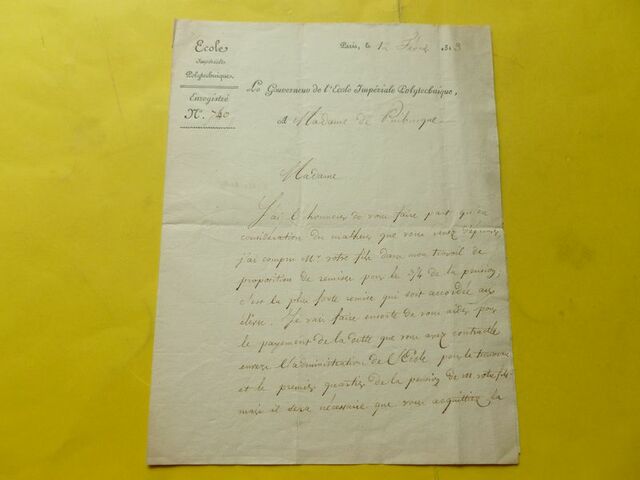 Ecole
Impériale
Polytechnique.
Enregistré
N.° 740
Paris, le 12 Févr. 1813
Le Gouverneur de l'Ecole Impériale Polytechnique,
A Madame de Puibusque
Madame
J'ai l'honneur de vous faire part qu'en
considération du malheur que vous venez d'éprouver
j'ai compris Mr. votre fils dans mon travail de
proposition de remises pour les 3/4 de la pension,
c'est la plus forte remise qui soit accordée aux
élèves. Je vais faire ensorte de vous aider pour
le payement de la dette que vous avez contractée
envers l'administration de l'Ecole pour le trousseau
et le premier quartier de la pension de M. votre fils
mais il sera nécessaire que vous acquittiez la